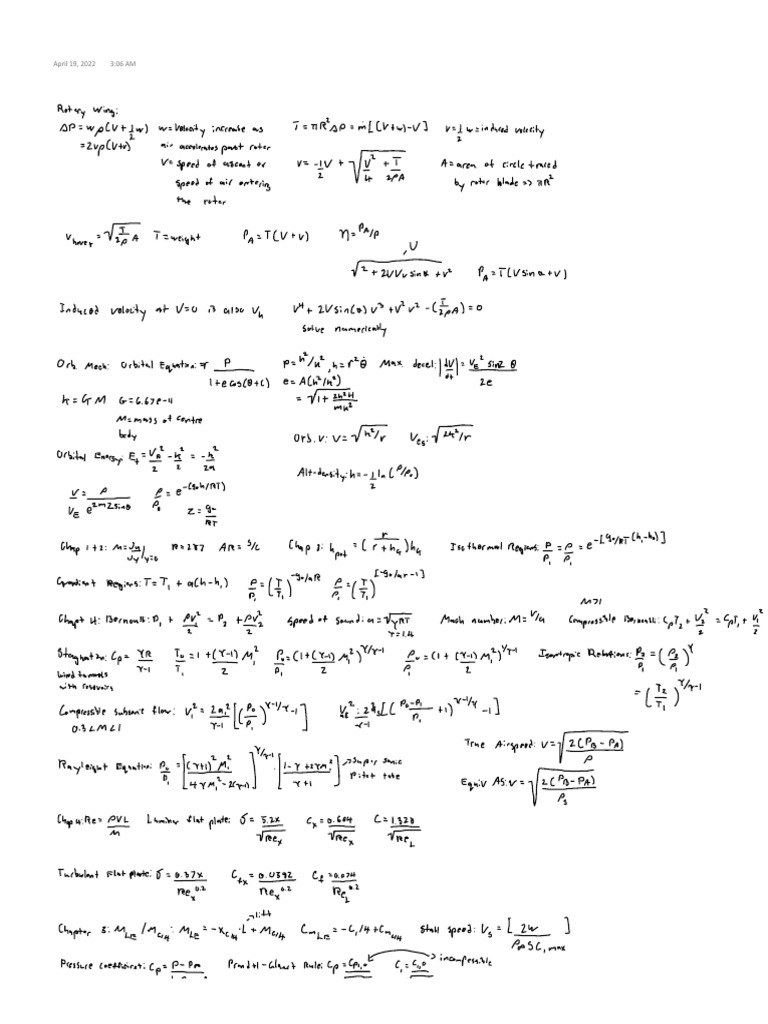 April 19, 2022 3:06 AM
Rotary Wing:
ΔP = wρ(V + 1/2 w) w = Velocity increase as T = πR² ΔP = ṁ[(V+w)-V] v = 1/2 w = induced velocity
= 2vρ(V+v) air accelerates past rotor
V = speed of ascent or v = -1/2 V + √(V²/4 + T/2ρA) A = area of circle traced
speed of air entering by rotor blade => πR²
the rotor
v_hover = √(T/2ρA) T = weight P_A = T(V+v) η = P_A/P
, U
√(² + 2UVv sinα + v²) P_A = T(V sinα + v)
Induced velocity at V=0 is also V_h v⁴ + 2V sin(α) v³ + V² v² - (T/2ρA) = 0
solve numerically
Orb. Mech: Orbital Equation: r P/(1+e cos(θ+C)) p = h²/k², h = r²θ̇ Max decel: |dV/dt| = V_E² sinZ θ/2e
e = A(h²/k²)
k = GM G = 6.67e-11 = √(1 + 2h²H/mk²)
M = mass of centre
body
Orb. v: V = √(k²/r) V_es: √(2k²/r)
Orbital Energy: E_t = V_A²/2 - k²/2 = -k²/2a
Alt-density: h = -1/2 ln(ρ/ρ₀)
V/V_E = ρ/e^(2m Z sinθ) ρ/ρ₀ = e^-(g₀h/RT) Z = g₀/RT
Chap 1+2: R = 287 AR = S/C Chap 3: h_pot = (r/(r+h_G))h_G Isothermal Regions: P/P₁ = ρ/ρ₁ = e^-[g₀/RT(h₁-h₀)]
Gradient Regions: T = T₁ + a(h-h₁) P/P₁ = (T/T₁)^(-g₀/aR) ρ/ρ₁ = (T/T₁)^[-g₀/ar-1]
M>1
Chapt 4: Bernoulli: P₁ + ρV₁²/2 = P₂ + ρV₂²/2 Speed of sound: a = √(γRT) Mach number: M = V/a Compressible Bernoulli: C_pT₂ + V₂²/2 = C_pT₁ + V₁²/2
γ = 1.4
Stagnation: C_p = γR/(γ-1) T₀/T₁ = 1 + (γ-1)/2 M₁² P₀/P₁ = (1 + (γ-1)/2 M₁²)^(γ/γ-1) ρ₀/ρ₁ = (1 + (γ-1)/2 M₁²)^(1/γ-1) Isentropic Relations: P₂/P₁ = (ρ₂/ρ₁)^γ
wind tunnels
with reservoirs = (T₂/T₁)^(γ/γ-1)
Compressible subsonic flow: V₁² = 2a₁²/(γ-1) [(P₀/P₁)^(γ-1/γ) - 1] [(P₀-P₁/P₁ + 1)^(γ-1/γ) - 1]
0.3<M<1
True Airspeed: V = √(2(P_B - P_A)/ρ)
Rayleigh Equation: P₀/P₁ = [(γ+1)² M₁²/(4γM₁² - 2(γ-1))]^(γ/γ-1) · [(1-γ+2γM₁²)/(γ+1)] → supersonic
pitot tube
Equiv AS: V = √(2(P_B - P_A)/ρ_s)
Chap 4: Re = ρVL/M Laminar flat plate: σ = 5.2x/√Re_x C_x = 0.664/√Re_x C = 1.328/√Re_L
Turbulent Flat plate: σ = 0.37x/Re_x^0.2 C_fx = 0.0592/Re_x^0.2 C_f = 0.074/Re_L^0.2
Chapter 5: M_LE/M_c/4: M_LE = -x_c/4 · L + M_c/4 C_mLE = -C_l/4 + C_mc/4 Stall speed: V_s = [2W/(ρ∞SC_l,max)]
Pressure coefficient: C_p = P-P∞ Prandtl-Glauert Rule: C_p = C_p,0 C_l = C_l,0 incompressible